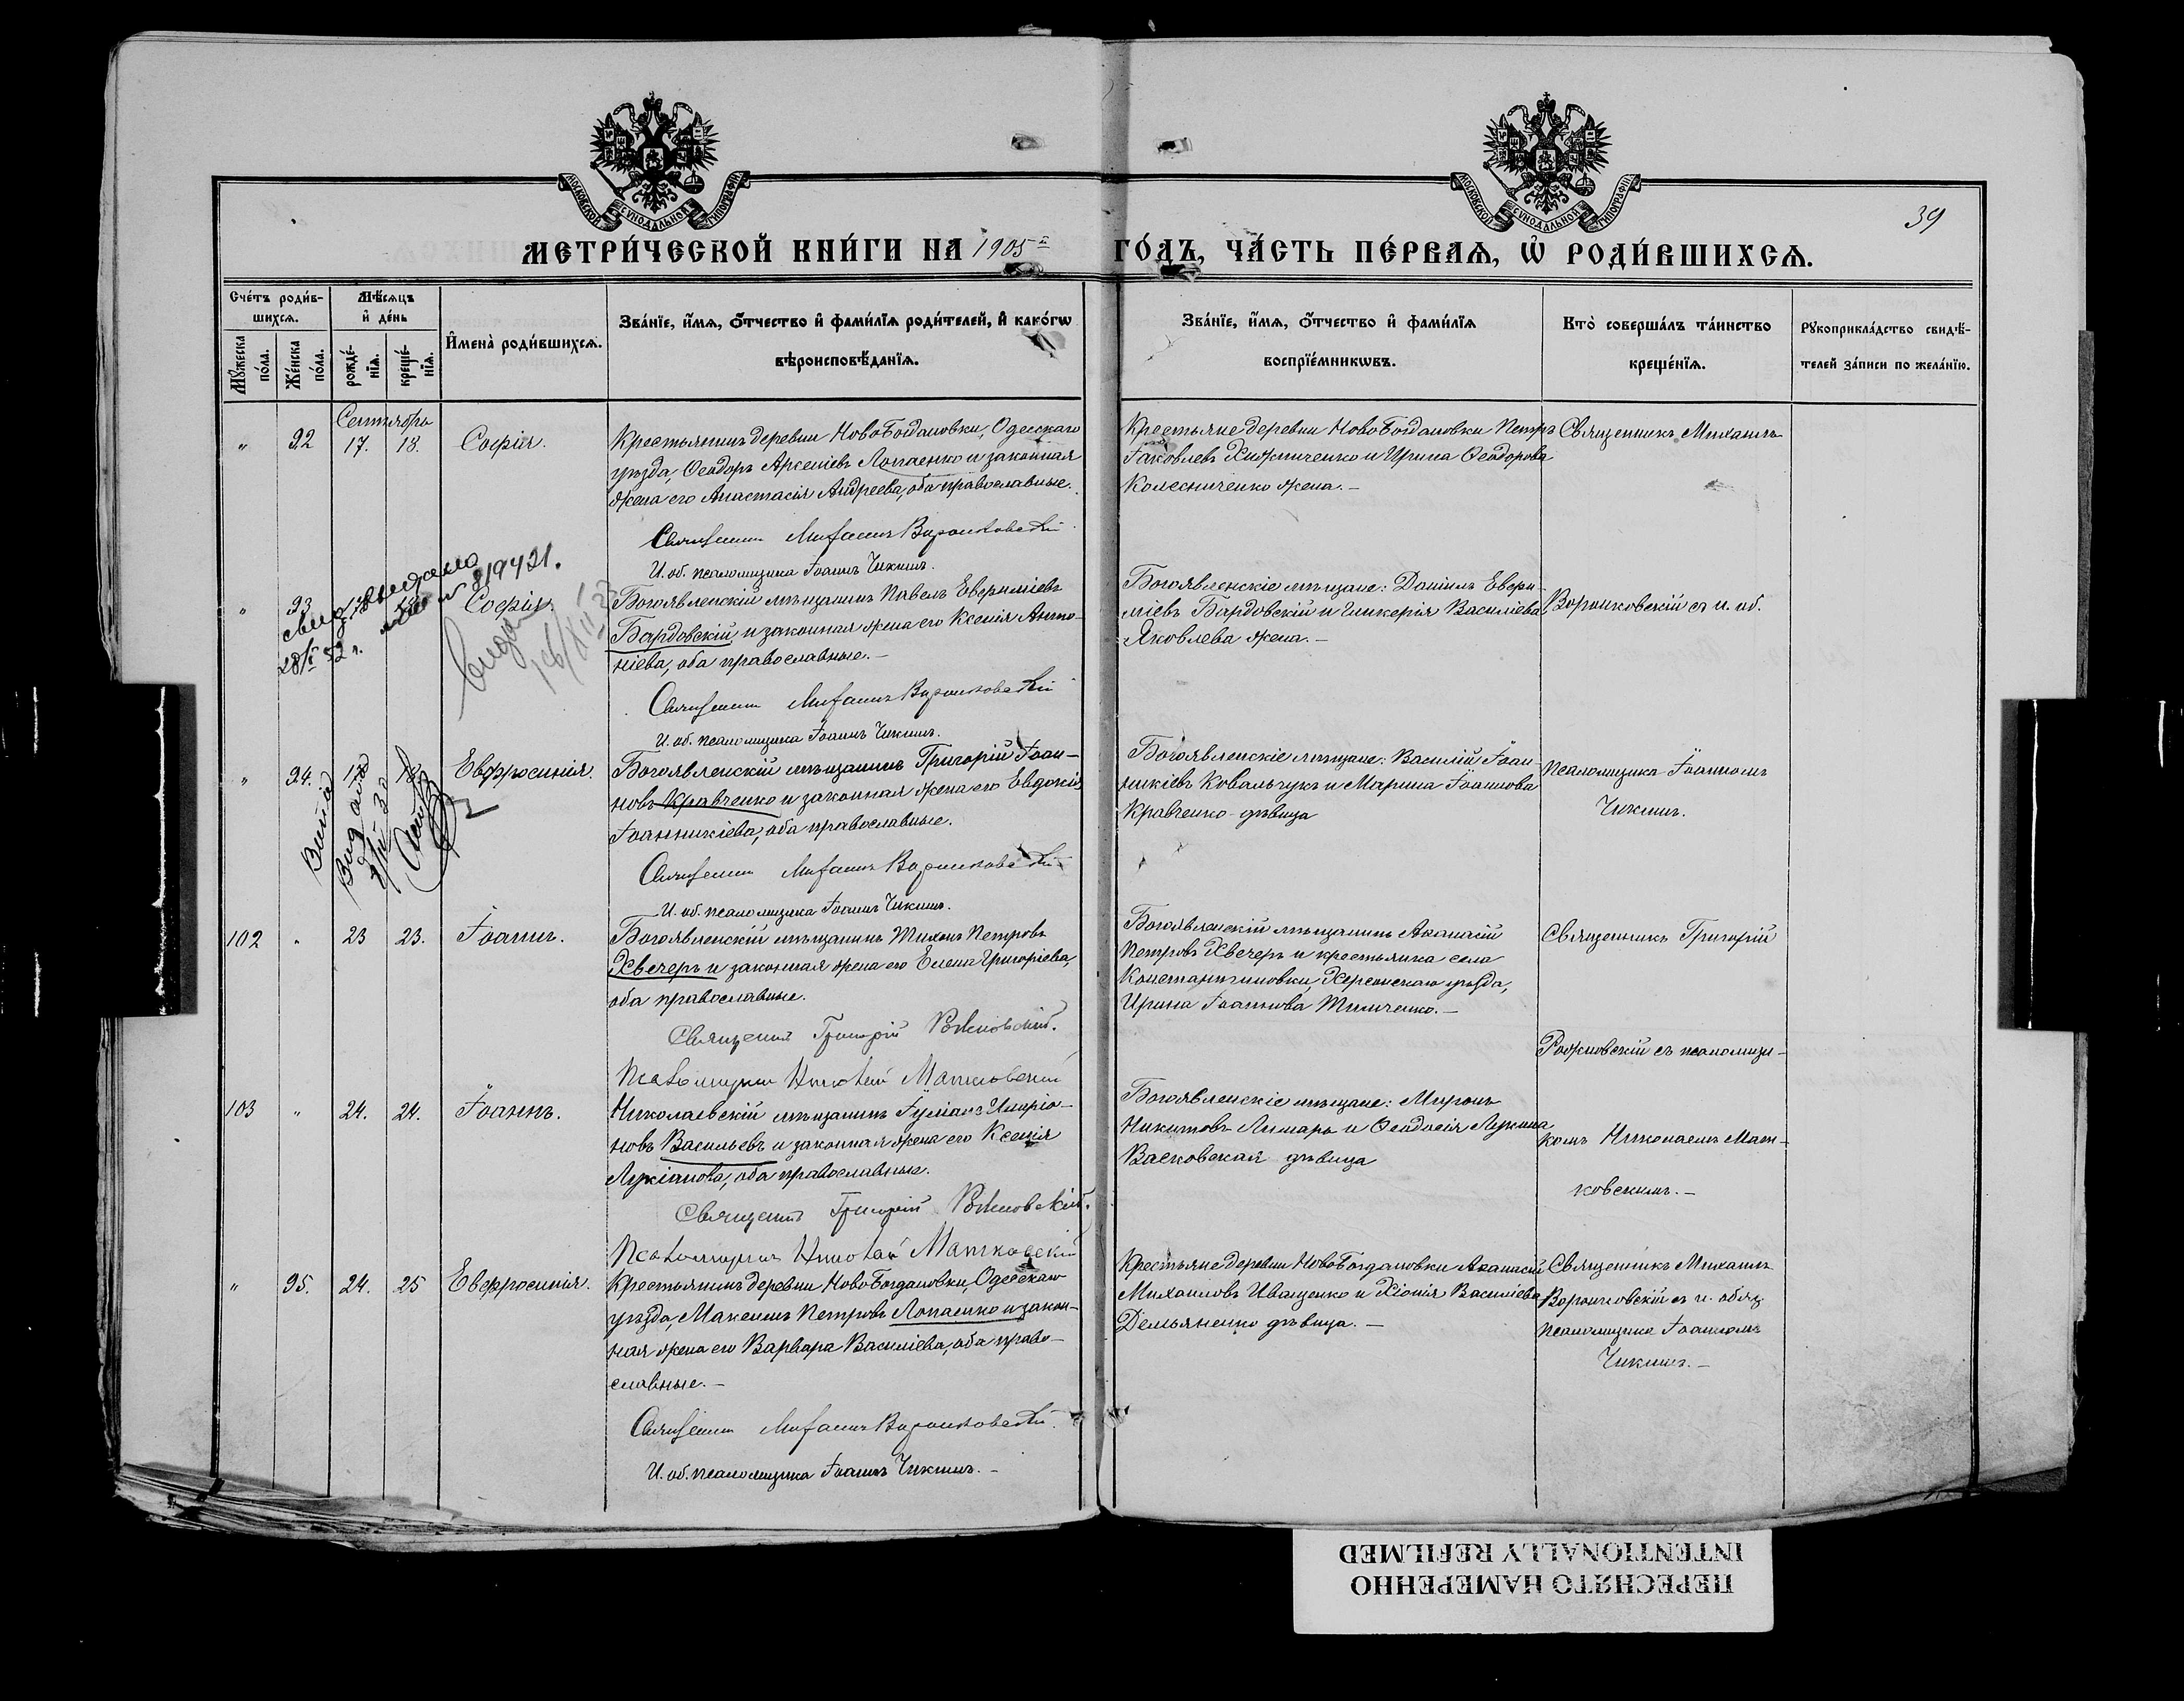 39
МЕТРИ́ЧЕСКОЙ КНИ́ГИ НА 1905й ГО́ДЪ, ЧА́СТЬ ПЕ́РВАѦ, Ѡ҆ РОДИ́ВШИХСѦ.
Сче́тъ роди́в-
шихсѧ.
Мѣ́сѧцъ
и҆ де́нь
Мꙋ́жеска
по́ла.
Же́нска
по́ла.
рожде́-
нїѧ.
креще́-
нїѧ.
И҆мена̀ роди́вшихсѧ.
Зва́нїе, и҆́мѧ, ѻ҆́тчество и҆ фами́лїѧ роди́телей, и҆ како́гѡ
вѣроисповѣ́данїѧ.
Зва́нїе, и҆́мѧ, ѻ҆́тчество и҆ фами́лїѧ
воспрїе́мникѡвъ.
Кто̀ соверша́лъ та́инство
креще́нїѧ.
Рꙋкоприкла́дство свидѣ́-
телей за́писи по жела́нїю.
Сентябрь
" 92 17. 18. Софія.
Крестьянинъ деревни НовоБогдановки, Одесскаго
уѣзда, Ѳеодоръ Арсеніевъ Лопаенко и законная
жена его Анастасія Андреева, оба православные.
Священникъ Михаилъ Воронковскій
И. об. псаломщика Іоаннъ Чикинъ.
Крестьяне деревни НовоБогдановки Петръ
Іаковлевъ Хижниченко и Ирина Ѳеодорова
Колесниченко жена.—
Священникъ Михаилъ
" 93 18 Софія.
28/ 52 г.
Богоявленскій мѣщанинъ Павелъ Евѳиміевъ
Бардовскій и законная жена его Ксенія Анто-
ніева, оба православные.—
Священникъ Михаилъ Воронковскій
И. об. псаломщика Іоаннъ Чикинъ.
Богоявленскіе мѣщане: Даніилъ Евѳи-
міевъ Бардовскій и Гликерія Василіева
Яковлева жена.—
Воронковскій съ и. об.
" 94. 17 18 Евфросинія.
Богоявленскій мѣщанинъ Григорій Іоан-
новъ Кравченко и законная жена его Евдокія
Іоанникіева, оба православные.
Священникъ Михаилъ Воронковскій
И. об. псаломщика Іоаннъ Чикинъ.
Богоявленскіе мѣщане: Василій Іоан-
никіевъ Ковальчукъ и Марина Іоаннова
Кравченко дѣвица
псаломщика Іоанномъ
Чикинъ.
102 " 23 23. Іоаннъ.
Богоявленскій мѣщанинъ Тихонъ Петровъ
Хвечеръ и законная жена его Елена Григоріева,
оба православные.
Священникъ Григорій Рожновскій.
Псаломщикъ Николай Матковскій
Богоявленскій мѣщанинъ Аѳанасій
Петровъ Хвечеръ и крестьянка села
Константиновки, Херсонскаго уѣзда,
Ирина Іоаннова Тимченко.—
Священникъ Григорій
Рожновскій съ псаломщи-
103 " 24. 24. Іоаннъ.
Николаевскій мѣщанинъ Іуліанъ Иларіо-
новъ Васильевъ и законная жена его Ксенія
Лукіанова, оба православные.
Священникъ Григорій Рожновскій.
Псаломщикъ Николай Матковскій
Богоявленскіе мѣщане: Миронъ
Никитовъ Лимарь и Ѳеодосія Лукина
Васковская дѣвица
комъ Николаемъ Мат-
ковскимъ.—
" 95. 24. 25 Евфросинія.
Крестьянинъ деревни НовоБогдановки, Одесскаго
уѣзда, Максимъ Петровъ Лопаенко и закон-
ная жена его Варвара Василіева, оба право-
славные.—
Священникъ Михаилъ Воронковскій.
И. об. псаломщика Іоаннъ Чикинъ.—
Крестьяне деревни НовоБогдановки Аѳанасій
Михаиловъ Иващенко и Хіонія Василіева
Демьяненко дѣвица.—
Священникъ Михаилъ
Воронковскій съ и. обяз.
псаломщика Іоанномъ
Чикинъ.—
ПЕРЕСНЯТО НАМЕРЕННО
INTENTIONALLY REFILMED